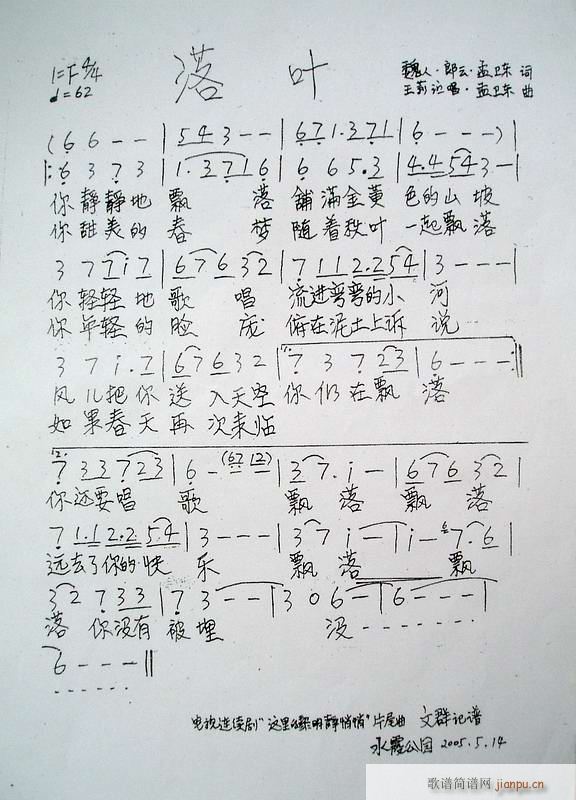 落 叶
1=F 4/4
♩=62
魏人·郎云·孟卫东 词
王莉 记唱·孟卫东 曲
(6 6 - - | 5 4 3 - - | 6 7 1·3 7 1 | 6 - - -)|
|: 6 3 7 3 | 1·3 7 1 6 | 6 6 5·3 | 4·4 5 4 3 - |
你静静地 飘 落 铺满金黄 色的山坡
你甜美的 春 梦 随着秋叶 一起飘落
3 7 7 i 7 | 6 7 6 3 2 | 7 1 1 2·2 5 4 | 3 - - - |
你轻轻地 歌 唱 流进弯弯的小 河
你年轻的 脸 庞 俯在泥土上诉 说
3 7 i·7 | 6 7 6 3 2 | 1. 7 3 7 2 3 | 6 - - - :||
风儿把你 送 入天空 你仍在飘 落
如果春天 再 次来临
2. 7 3 3 7 2 3 | 6 - (6 7 1 2) | 3 7·i - | 6 7 6 3 2 |
你还要唱 歌 飘 落 飘 落
7 1·1 2·2 5·4 | 3 - - - | 3 7 i - | i - 6 7·6 |
远去了你的快 乐 飘 落 飘
3 2 7 3 3 | 7 3 - - | 3 0 6 - | 6 - - - |
落 你没有 被埋 没 - - - - - - -
6 - - - ||
- - - - - -
电视连续剧"这里的黎明静悄悄"片尾曲 文群记谱
水霞公园 2005.5.14
歌谱简谱网
jianpu.cn